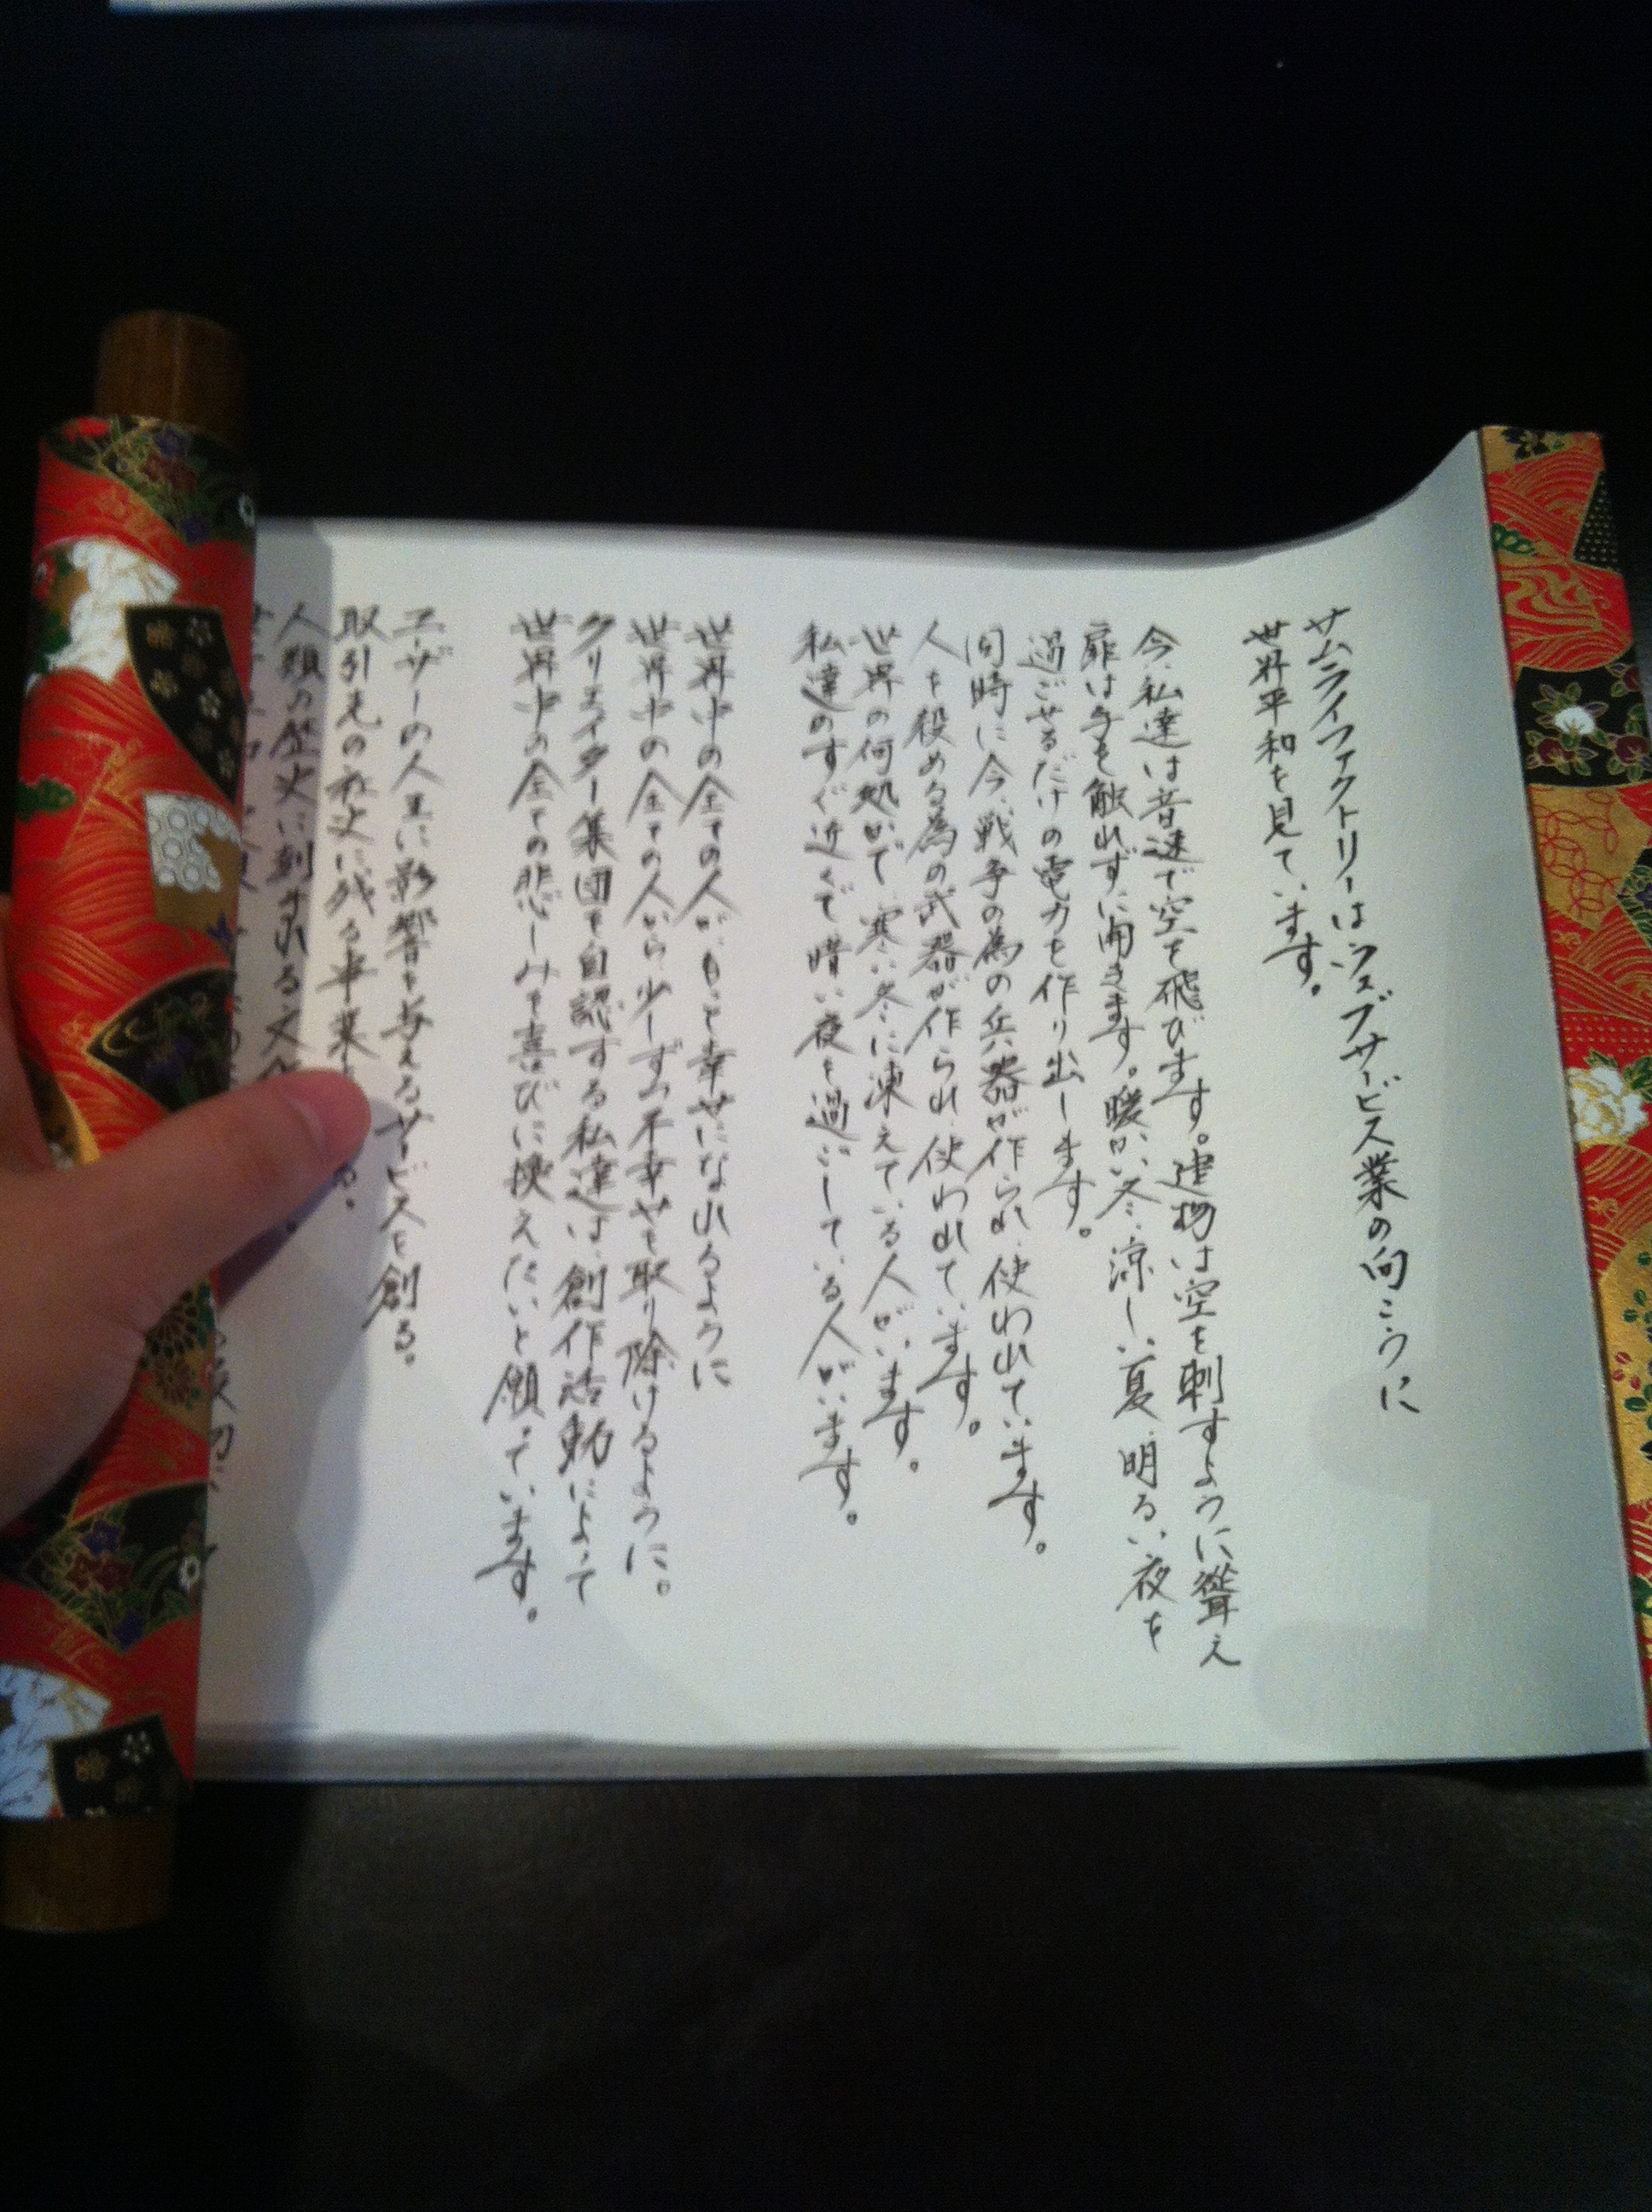 サムライファクトリーはウェブサービス業の向こうに
世界平和を見ています。
今、私達は音速で空を飛びます。建物は空を刺すように聳え
扉は手を触れずに開きます。暖かい冬、涼しい夏、明るい夜を
過ごせるだけの電力を作り出します。
同時に今、戦争の為の兵器が作られ、使われています。
人を殺める為の武器が作られ、使われています。
世界の何処かで、寒い冬に凍えている人がいます。
私達のすぐ近くで暗い夜を過ごしている人がいます。
世界中の全ての人が、もっと幸せになれるように
世界中の全ての人から少しずつ不幸せを取り除けるように。
クリエイター集団を自認する私達は、創作活動によって
世界中の全ての悲しみを喜びに換えたいと願っています。
ユーザーの人生に影響を与えるサービスを創る。
取引先の社史に残る事業
人類の歴史に刻まれる文